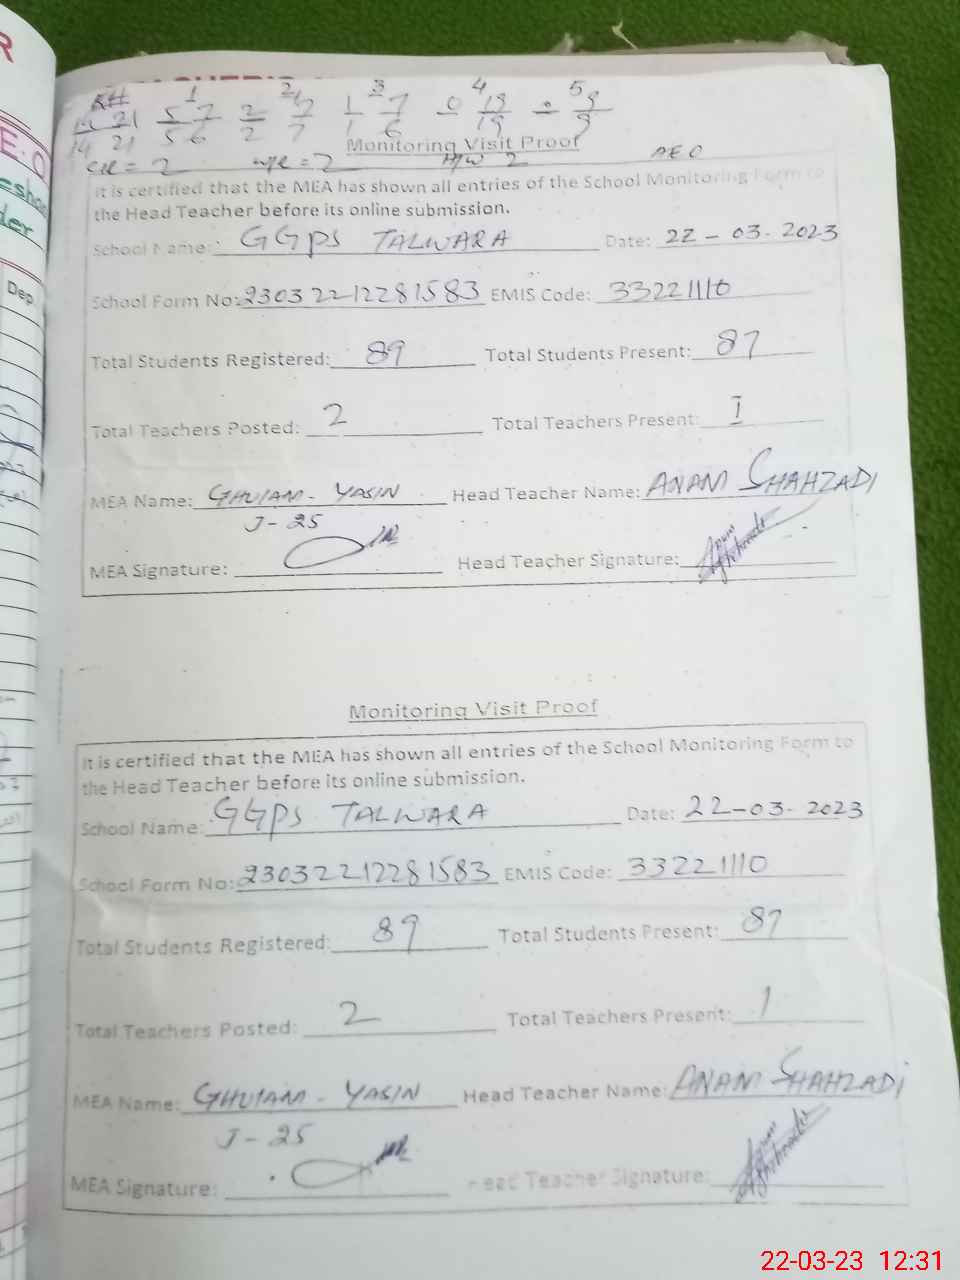 Monitoring Visit Proof
It is certified that the MEA has shown all entries of the School Monitoring Form to
the Head Teacher before its online submission.
School Name: GGPS TALWARA Date: 22-03-2023
School Form No: 23032212281583 EMIS Code: 33221110
Total Students Registered: 89 Total Students Present: 87
Total Teachers Posted: 2 Total Teachers Present: 1
MEA Name: GHULAM-YASIN Head Teacher Name: ANAM SHAHZADI
J-25
MEA Signature: Head Teacher Signature:
Monitoring Visit Proof
It is certified that the MEA has shown all entries of the School Monitoring Form to
the Head Teacher before its online submission.
School Name: GGPS TALWARA Date: 22-03-2023
School Form No: 23032212281583 EMIS Code: 33221110
Total Students Registered: 89 Total Students Present: 87
Total Teachers Posted: 2 Total Teachers Present: 1
MEA Name: GHULAM-YASIN Head Teacher Name: ANAM SHAHZADi
J-25
MEA Signature: Head Teacher Signature:
22-03-23 12:31